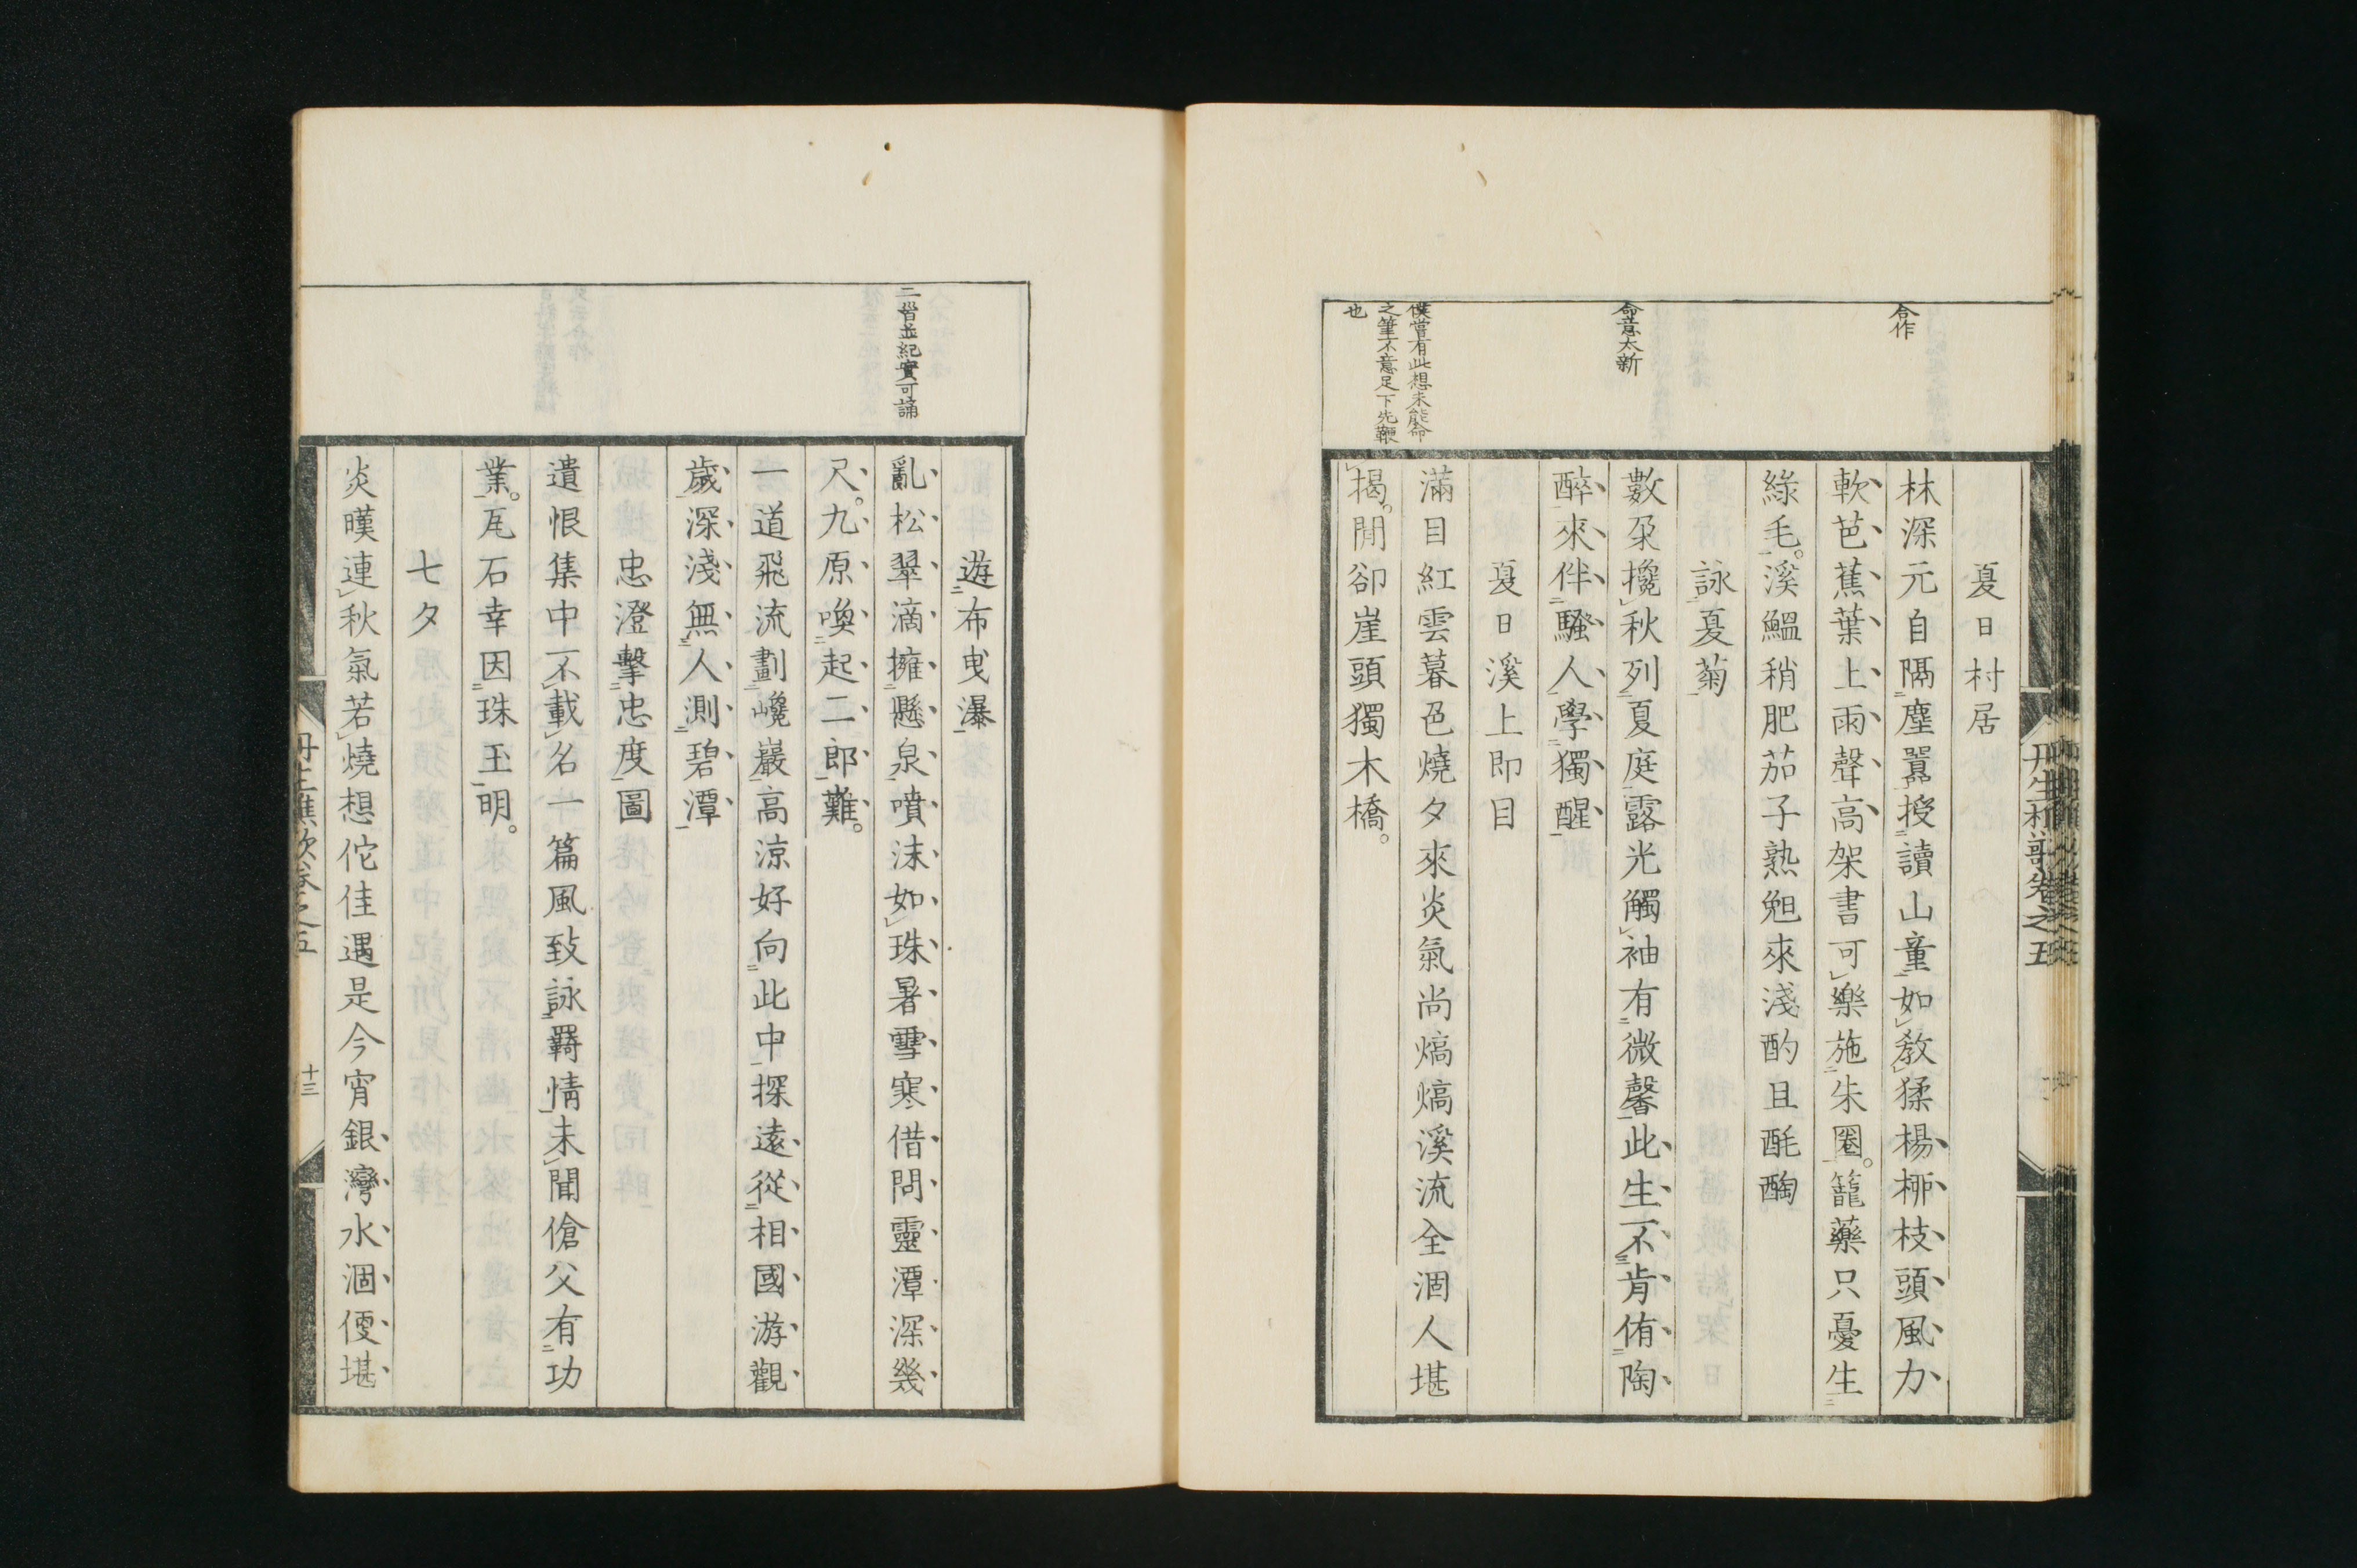 合作
命意太新
僕嘗有此想未能命
之筆不意足下先鞭
也
丹生樵歌卷之五
夏日村居
林深元自隔塵囂授讀山童如敎猱楊柳枝頭風力
軟芭蕉葉上雨聲高架書可樂施朱圈籠藥只憂生
綠毛溪鰛稍肥茄子熟𠒎來淺酌且酕醄
詠夏菊
數朶攙秋列夏庭露光觸袖有微馨此生不肯侑陶
醉來伴騷人學獨醒
夏日溪上即目
滿目紅雲暮色燒夕來炎氣尚熇熇溪流全涸人堪
揭閒卻崖頭獨木橋
二首並紀實可誦
遊布曳瀑
亂松翠滴擁懸泉噴沫如珠暑雪寒借問靈潭深幾
尺九原喚起二郎難
一道飛流劃巉巖高涼好向此中探遠從相國游觀
歲深淺無人測碧潭
忠澄擊忠度圖
遺恨集中不載名一篇風致詠羇情未聞傖父有功
業瓦石幸因珠玉明
七夕
炎暵連秋氣若燒想佗佳遇是今宵銀灣水涸便堪
丹生樵歌卷之五
十三